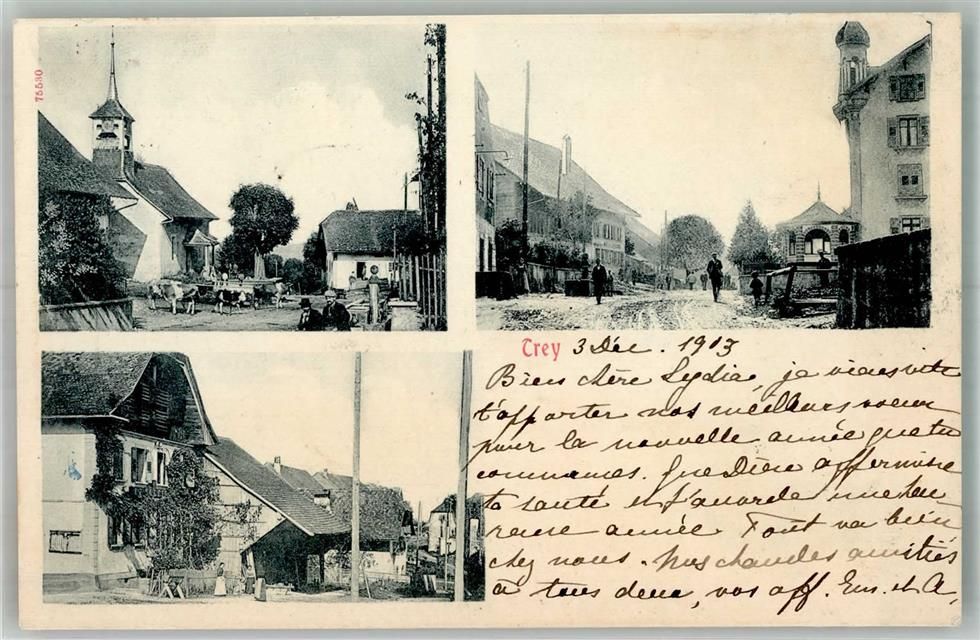 75530
Trey 3 Déc. 1903
Bien chère Lydia, je viens vite
t'apporter nos meilleurs voeux
pour la nouvelle année que tu
commences. Que Dieu affermisse
ta santé et t'accorde une heu
reuse année. Tout va bien
chez nous. Nos chaudes amitiés
à tous deux, vos aff. Em. et A.